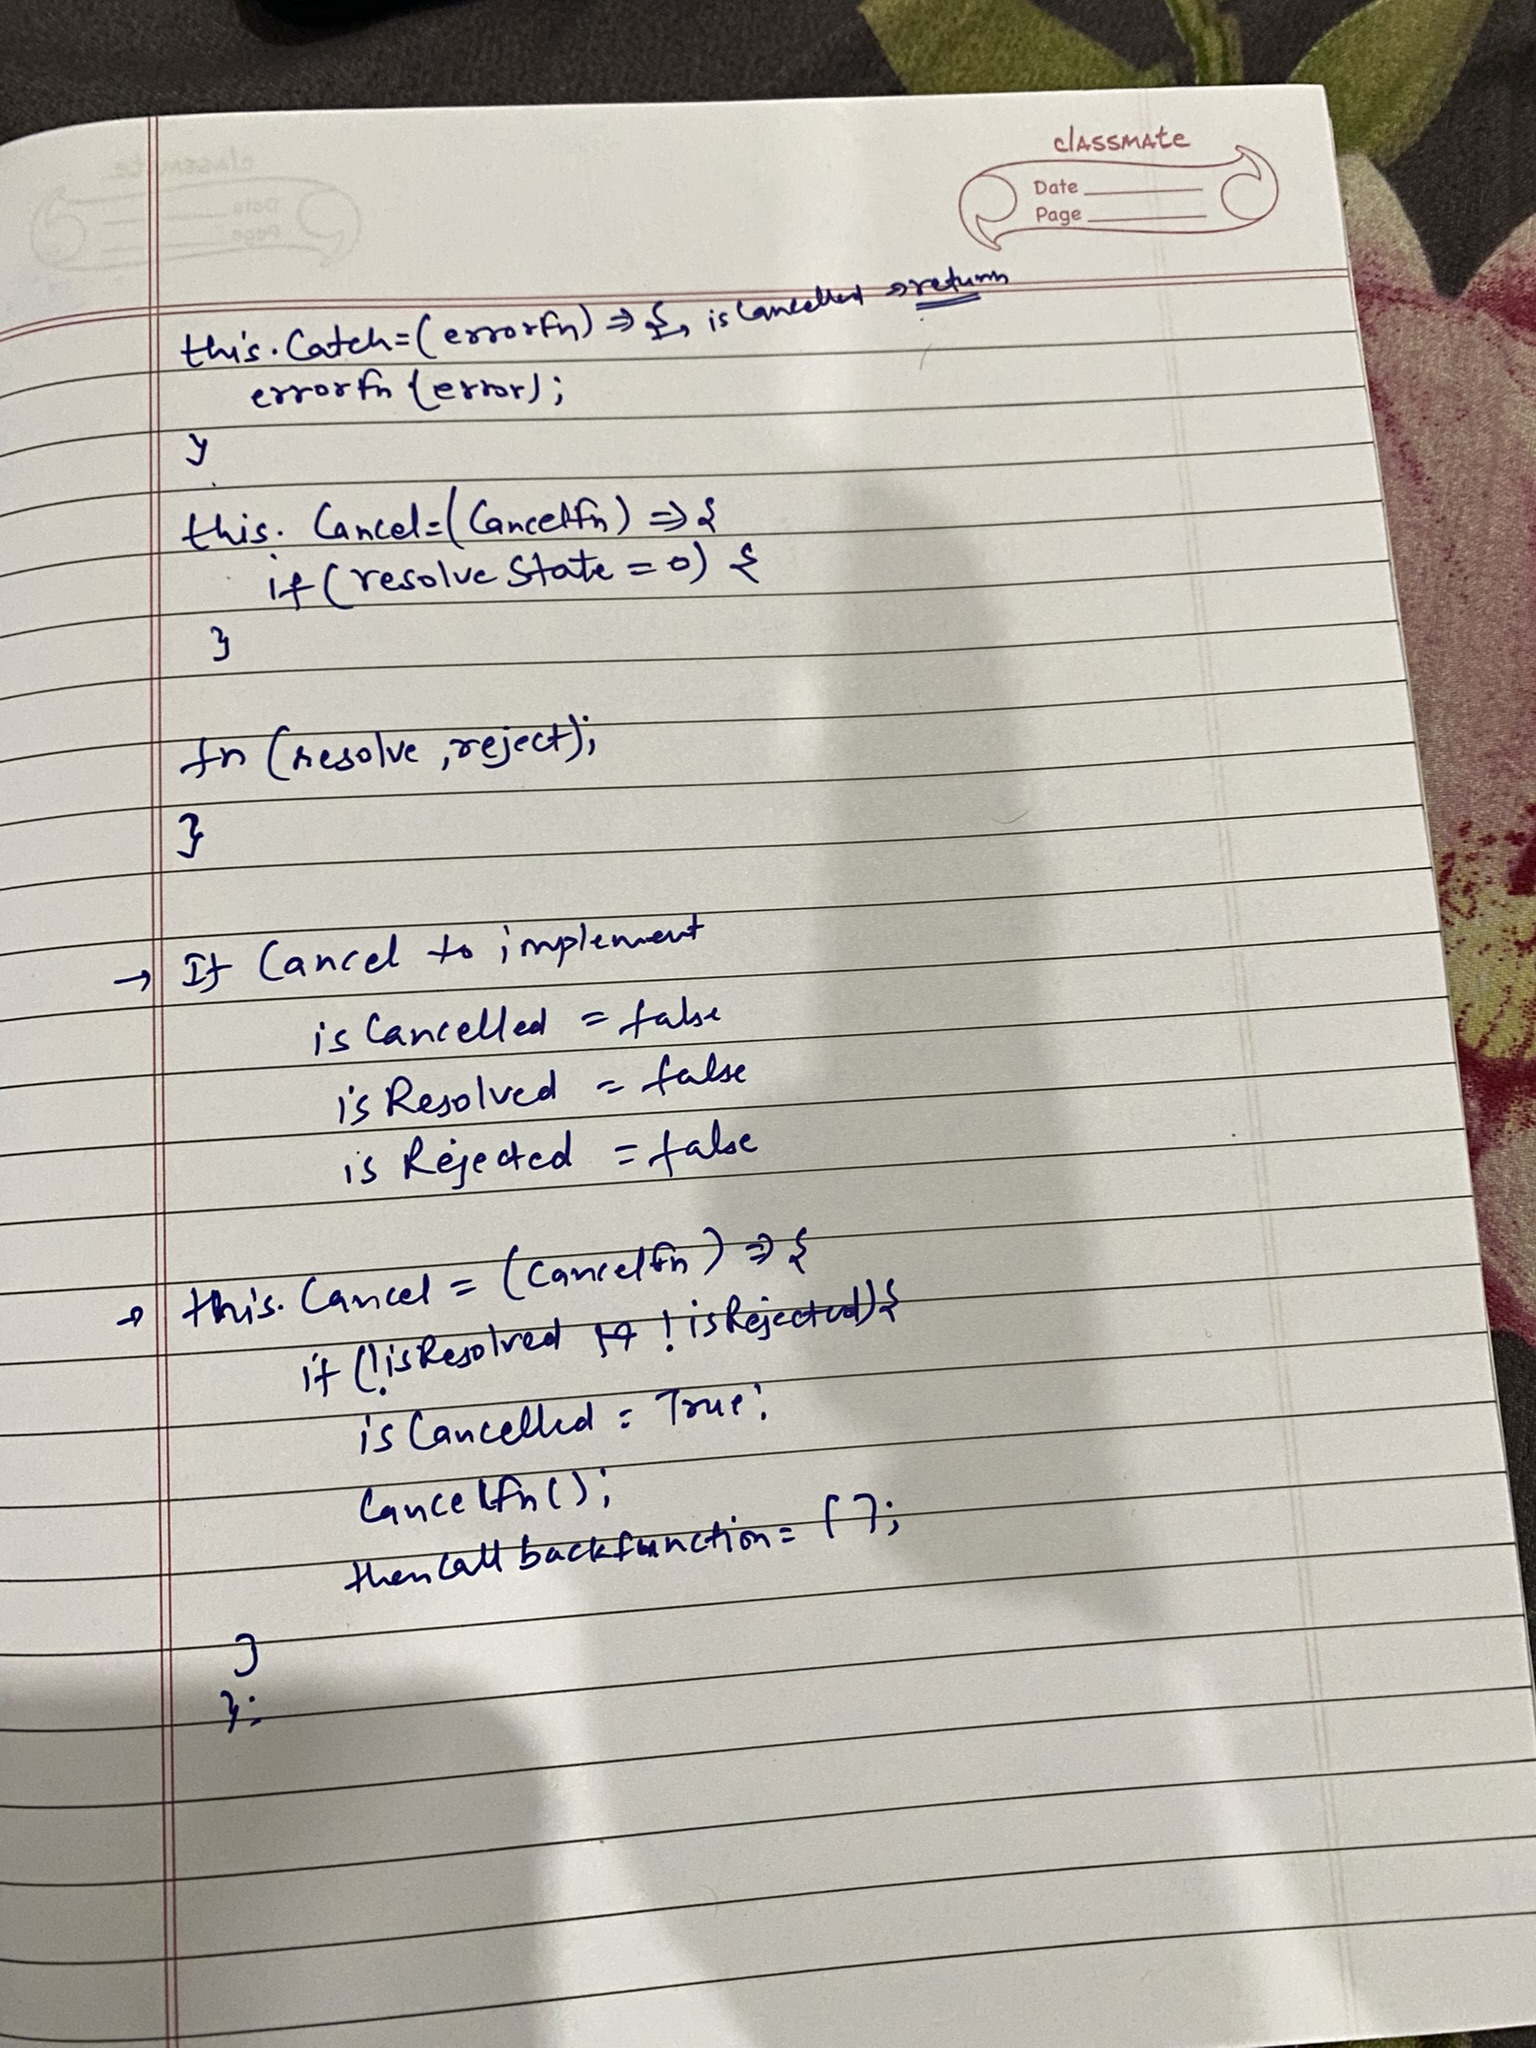 classmate
Date
Page
this.Catch=(errorfn) => { → isCancelled → return
errorfn (error);
}
this.Cancel=(Cancelfn) => {
if (resolveState = 0) {
}
fn (resolve, reject);
}
→ If Cancel to implement
isCancelled = false
isResolved = false
isRejected = false
→ this.Cancel = (Cancelfn) => {
if (!isResolved && !isRejected) {
isCancelled = True;
Cancelfn();
thenCallbackfunction = [];
}
};